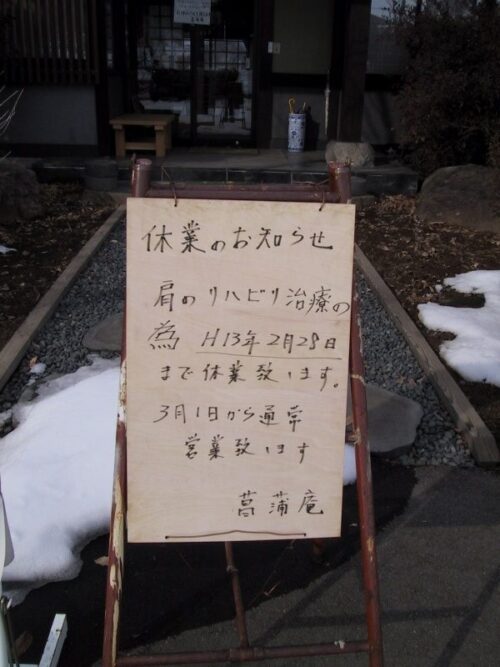 休業のお知らせ
肩のリハビリ治療の
為 H13年2月28日
まで休業致します。
3月1日から通常
営業致します
菖蒲庵